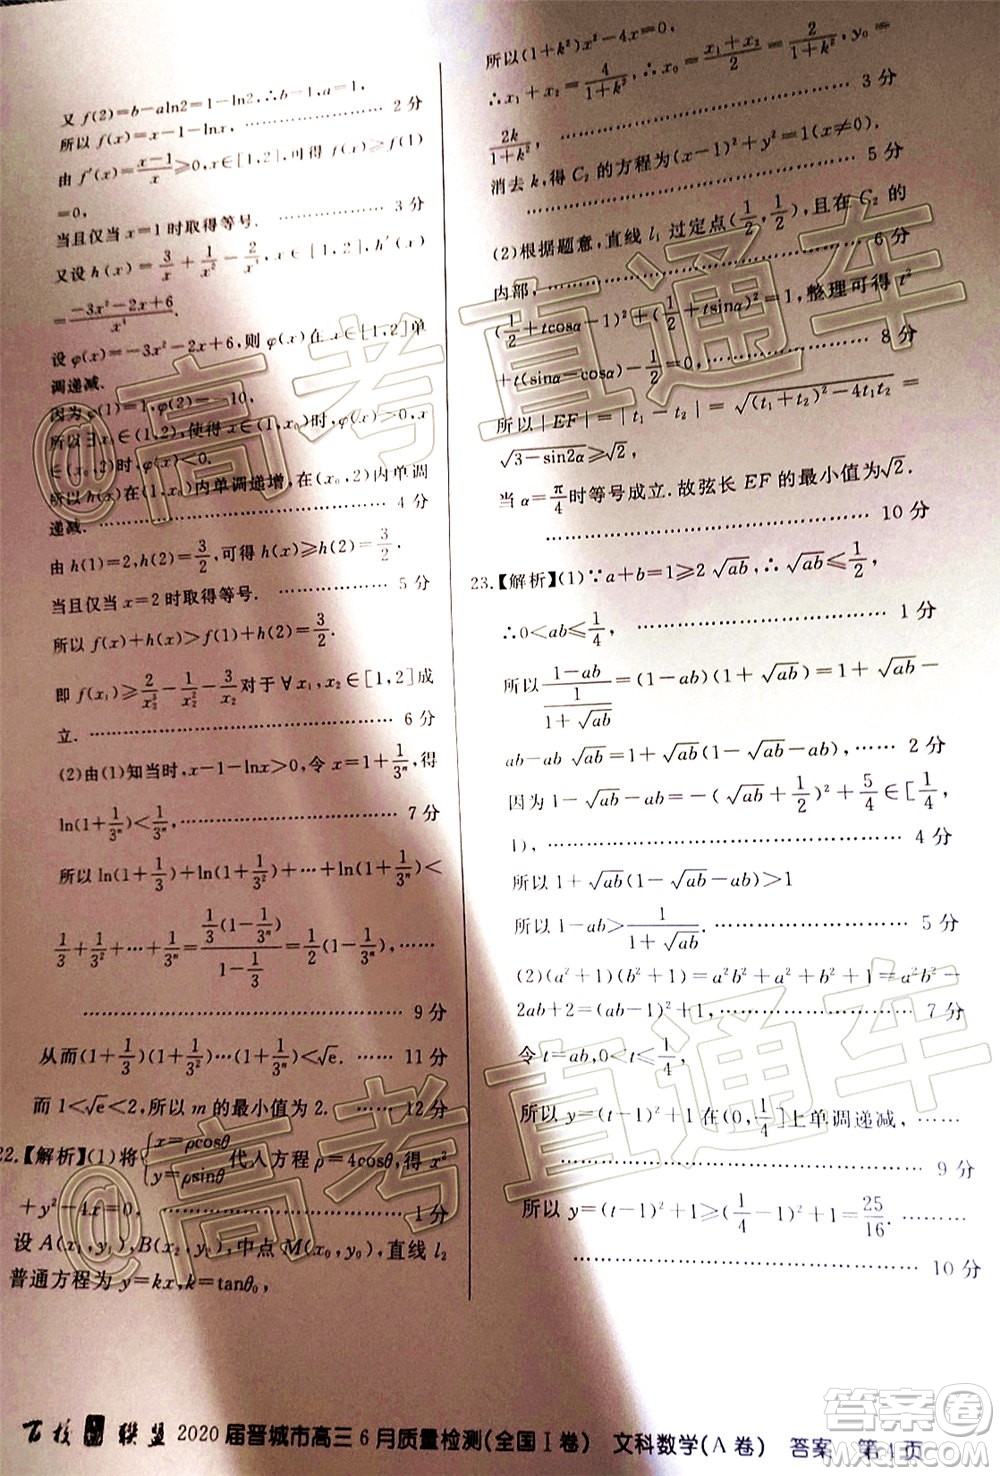 又 f(2)=b-aln2=1-ln2,∴b=1,a=1,
所以 f(x)=x-1-lnx. ……………… 2 分
由 f′(x)=\frac{x-1}{x}≥0,x∈[1,2],可得 f(x)≥f(1)
=0,
当且仅当 x=1 时取得等号. ……………… 3 分
又设 h(x)=\frac{3}{x}+\frac{1}{x²}-\frac{2}{x³},x∈[1,2],h′(x)
=\frac{-3x²-2x+6}{x⁴}.
设 φ(x)=-3x²-2x+6,则 φ(x)在 x∈[1,2]单
调递减.
因为 φ(1)=1,φ(2)=-10,
所以∃x₀∈(1,2),使得 x∈(1,x₀)时,φ(x)>0,x
∈(x₀,2)时,φ(x)<0.
所以 h(x)在(1,x₀)内单调递增,在(x₀,2)内单调
递减. ……………… 4 分
由 h(1)=2,h(2)=\frac{3}{2},可得 h(x)≥h(2)=\frac{3}{2},
当且仅当 x=2 时取得等号. ……………… 5 分
所以 f(x)+h(x)>f(1)+h(2)=\frac{3}{2}.
即 f(x₁)≥\frac{2}{x₂³}-\frac{1}{x₂²}-\frac{3}{x₂}对于∀x₁,x₂∈[1,2]成
立. ……………… 6 分
(2)由(1)知当时,x-1-lnx>0,令 x=1+\frac{1}{3ⁿ},得
ln(1+\frac{1}{3ⁿ})<\frac{1}{3ⁿ}, ……………… 7 分
所以 ln(1+\frac{1}{3})+ln(1+\frac{1}{3²})+…+ln(1+\frac{1}{3ⁿ})<
\frac{1}{3}+\frac{1}{3²}+…+\frac{1}{3ⁿ}=\frac{\frac{1}{3}(1-\frac{1}{3ⁿ})}{1-\frac{1}{3}}=\frac{1}{2}(1-\frac{1}{3ⁿ}). ……
……………… 9 分
从而(1+\frac{1}{3})(1+\frac{1}{3²})…(1+\frac{1}{3ⁿ})<√e. …… 11 分
而 1<√e<2,所以 m 的最小值为 2. ……… 12 分
22.【解析】(1)将{x=ρcosθ
y=ρsinθ 代人方程 ρ=4cosθ,得 x²
+y²-4x=0. ……………… 1 分
设 A(x₁,y₁),B(x₂,y₂),中点 M(x₀,y₀),直线 l₂
普通方程为 y=kx,k=tanθ₀,
所以(1+k²)x²-4x=0,
∴x₁+x₂=\frac{4}{1+k²},∴x₀=\frac{x₁+x₂}{2}=\frac{2}{1+k²},y₀=
\frac{2k}{1+k²}, ………………
消去 k,得 C₂ 的方程为(x-1)²+y²=1(x≠0).
……………… 5 分
(2)根据题意,直线 l₁ 过定点(\frac{1}{2},\frac{1}{2}),且在 C₂ 的
内部, ……………… 6 分
(\frac{1}{2}+tcosα-1)²+(\frac{1}{2}+tsinα)²=1,整理可得 t²
+t(sinα-cosα)-\frac{1}{2}=0. ……………… 8 分
所以|EF|=|t₁-t₂|=√((t₁+t₂)²-4t₁t₂)=
√(3-sin2α)≥√2.
当 α=\frac{π}{4}时等号成立.故弦长 EF 的最小值为√2.
……………… 10 分
23.【解析】(1)∵a+b=1≥2√ab,∴√ab≤\frac{1}{2},
∴0<ab≤\frac{1}{4}, ……………… 1 分
所以\frac{1-ab}{\frac{1}{1+√ab}}=(1-ab)(1+√ab)=1+√ab-
ab-ab√ab=1+√ab(1-√ab-ab), …… 2 分
因为 1-√ab-ab=-(√ab+\frac{1}{2})²+\frac{5}{4}∈[\frac{1}{4},
1), ……………… 4 分
所以 1+√ab(1-√ab-ab)>1
所以 1-ab>\frac{1}{1+√ab}. ……………… 5 分
(2)(a²+1)(b²+1)=a²b²+a²+b²+1=a²b²-
2ab+2=(ab-1)²+1, ……………… 7 分
令 t=ab,0<t≤\frac{1}{4},
所以 y=(t-1)²+1 在(0,\frac{1}{4}]上单调递减,……
……………… 9 分
所以 y=(t-1)²+1≥(\frac{1}{4}-1)²+1=\frac{25}{16}.
……………… 10 分
百校 联盟 2020 届晋城市高三 6 月质量检测(全国Ⅰ卷) 文科数学(A 卷) 答案 第 4 页
@高考直通车
@高考直通车
答案圈
MXQE.COM